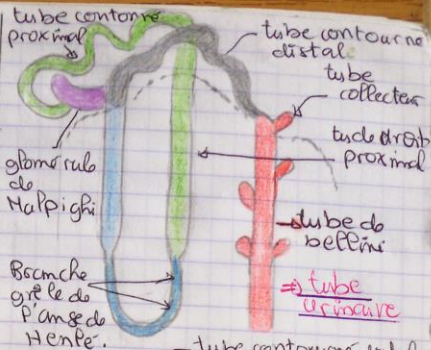 tube contourné
proximal
tube contourne
distal
tube
collecteur
tude droit
proximal
glomérule
de
Malpighi
tube de
bellini
Branche
grêle de
l'anse de
Henlé.
=> tube
urinaire
- tube contourné